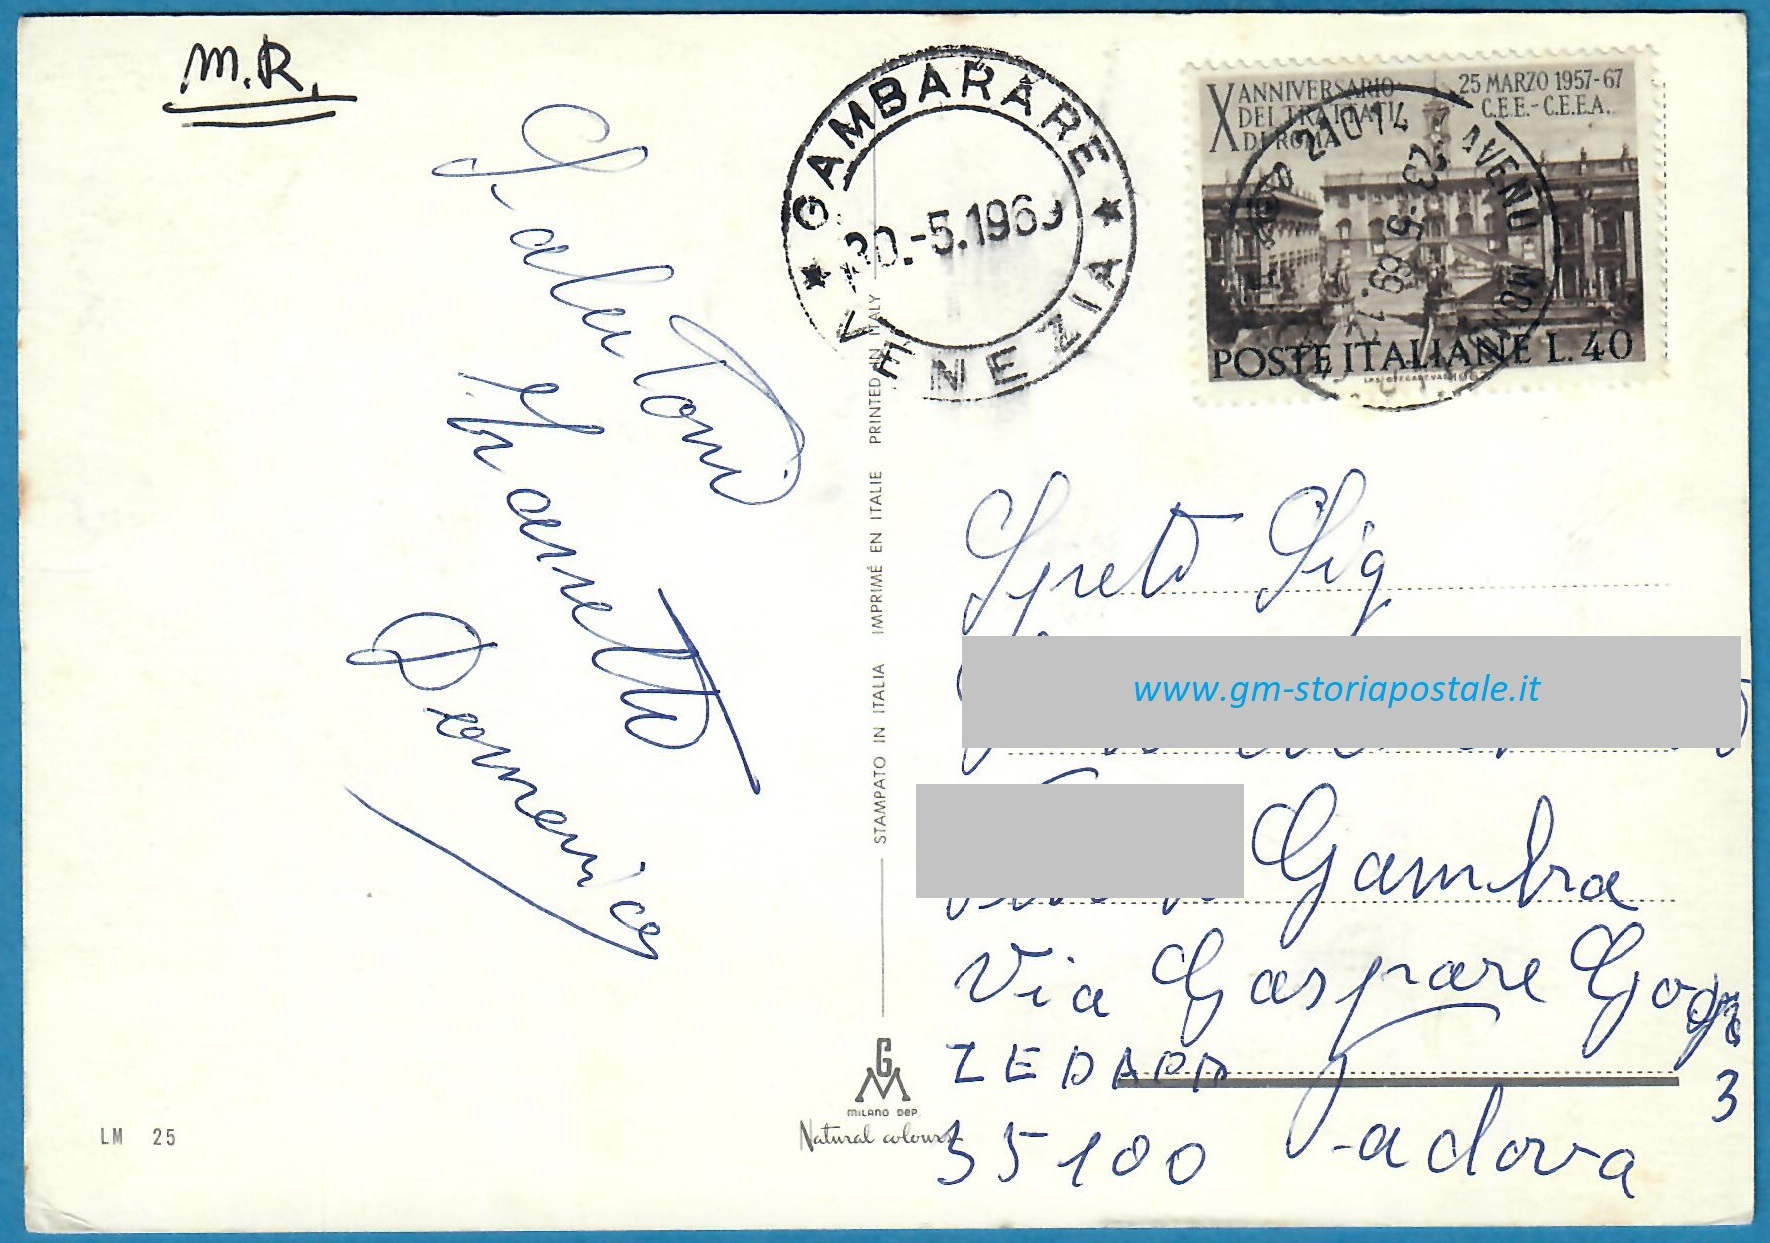 M.R.
Salutoni
Zanetto
Domenico
★ GAMBARARE ★
VENEZIA
30.-5.1969
X ANNIVERSARIO
DEI TRATTATI
DI ROMA
25 MARZO 1957-67
C.E.E.-C.E.E.A.
POSTE ITALIANE L. 40
STAMPATO IN ITALIA IMPRIMÉ EN ITALIE PRINTED IN ITALY
Spett Sig
www.gm-storiapostale.it
Gambra
Via Gaspare
3
35100 Padova
GM
MILANO DEP.
Natural colours
LM 25